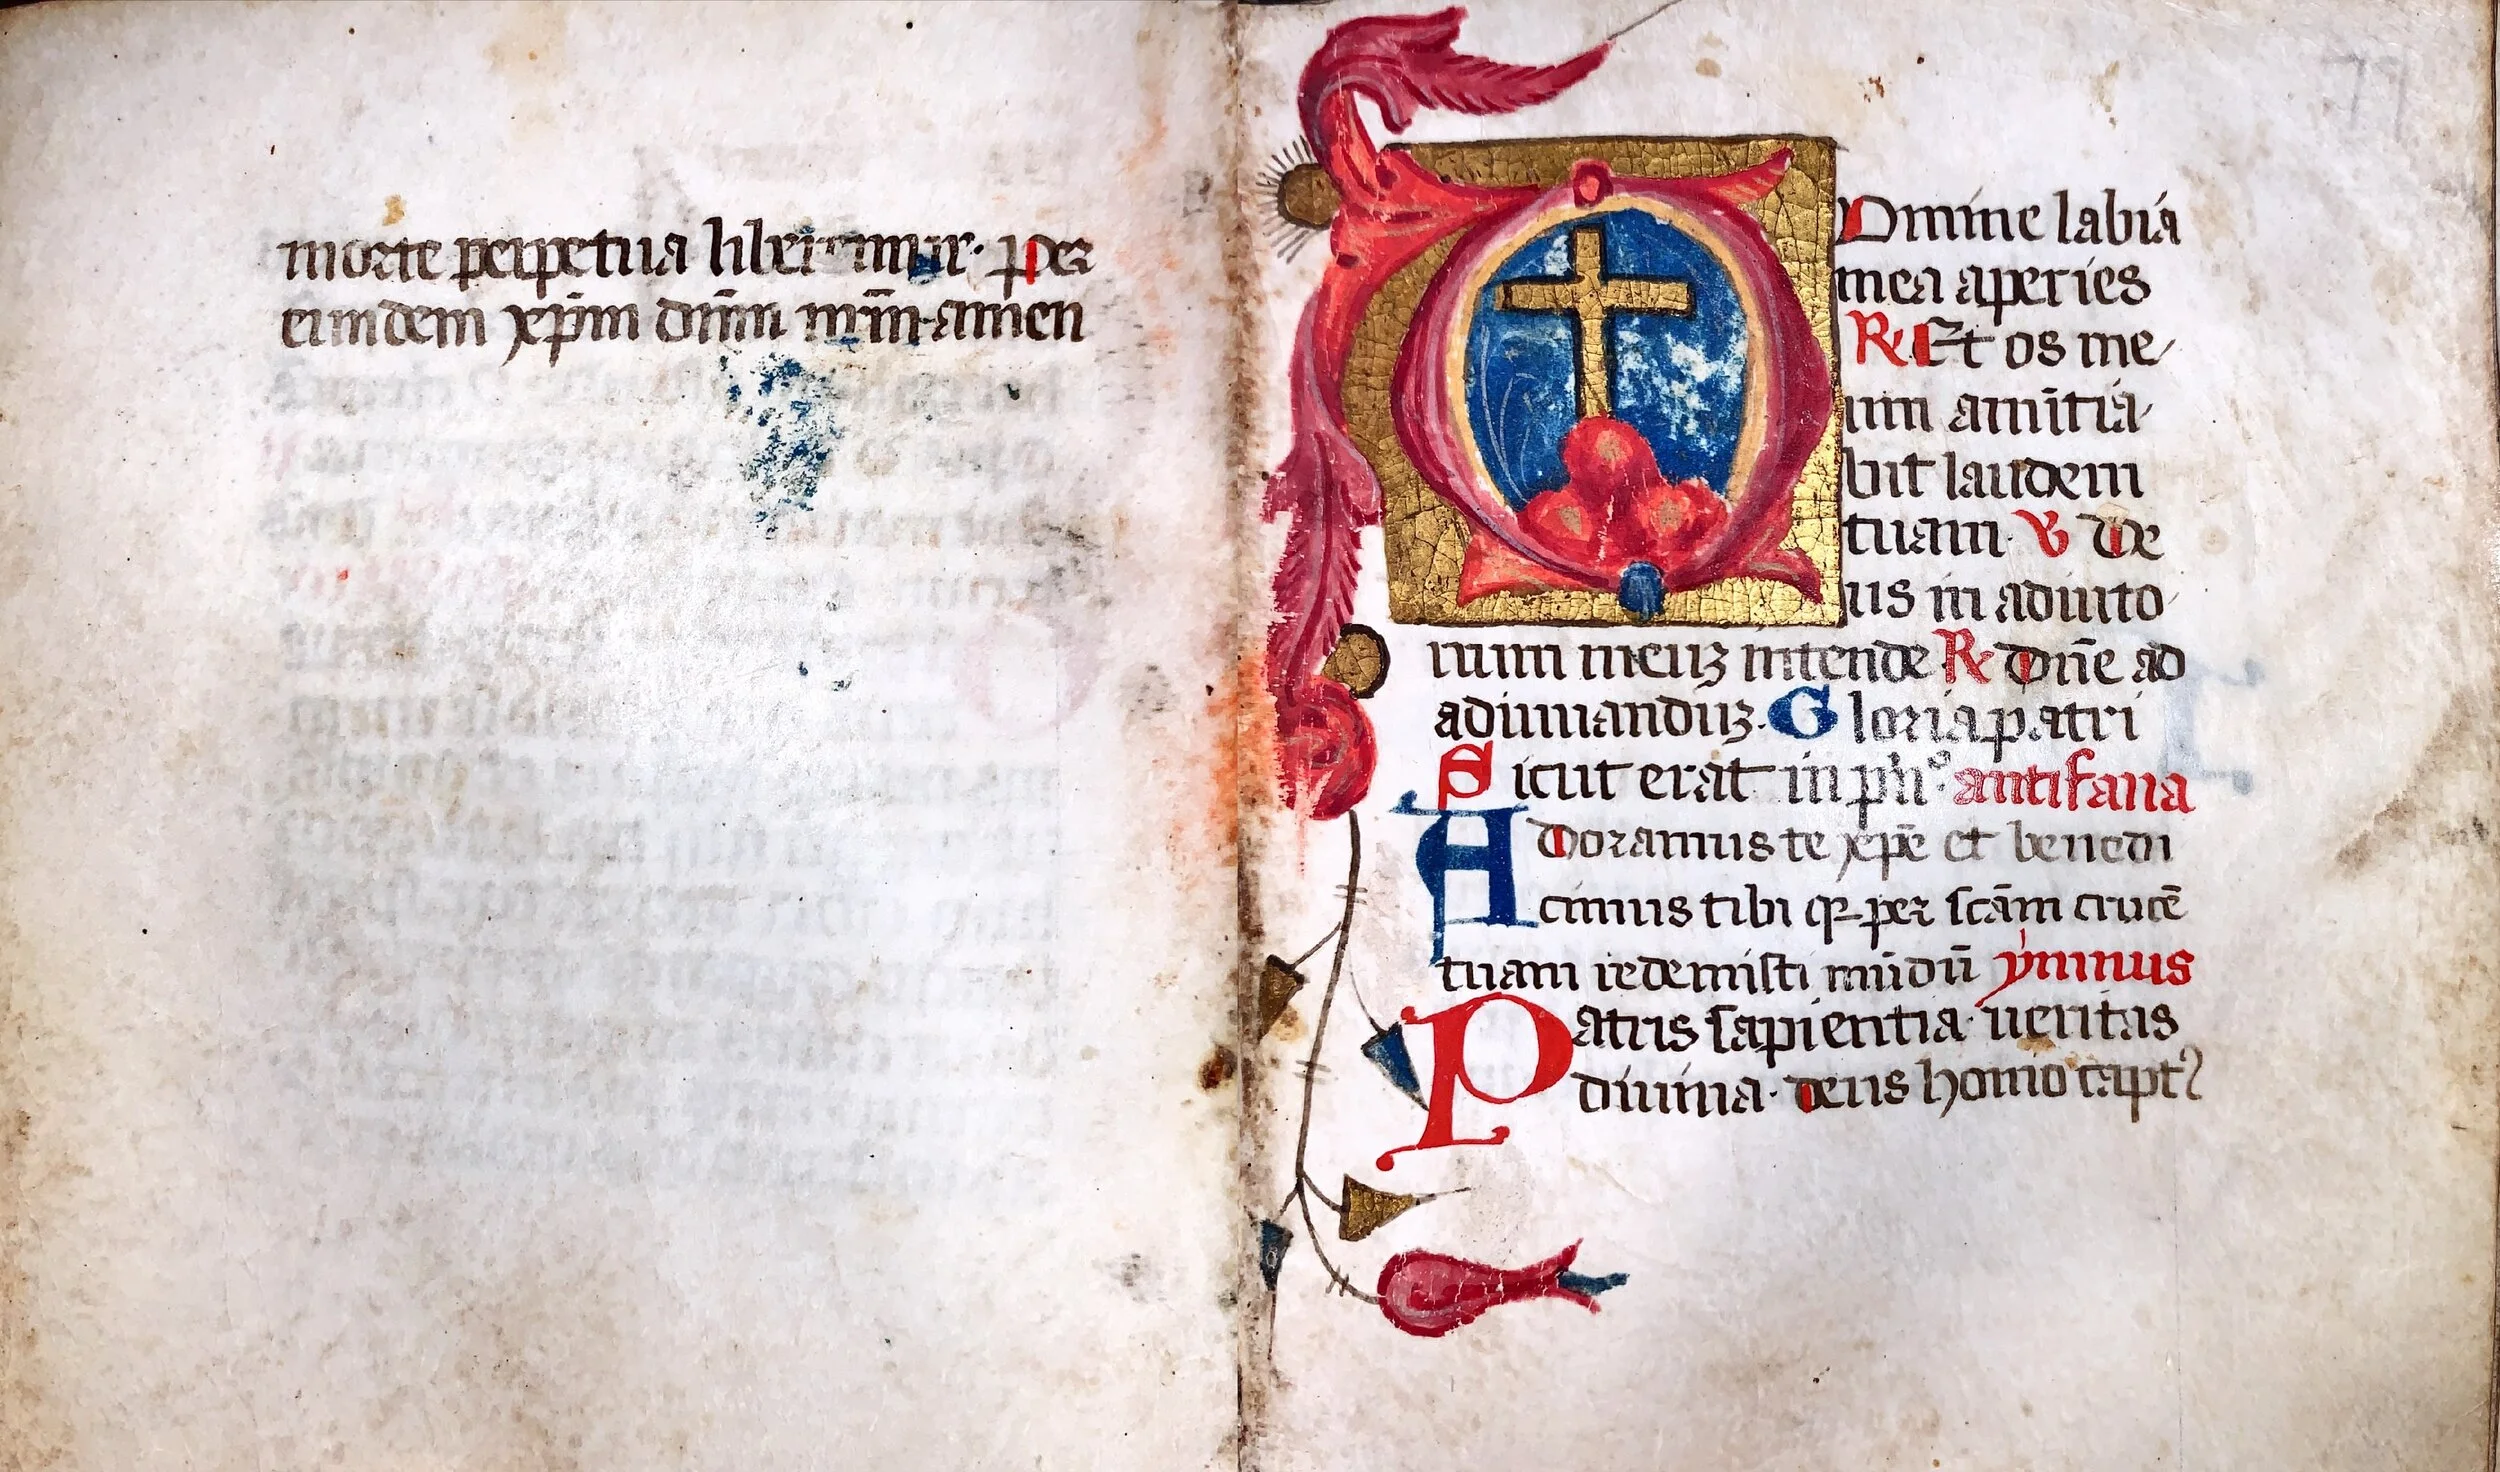 morte perpetua liberemur. per
eiusdem xp̄m dn̄m nr̄m. amen
Domine labia
mea aperies
R Et os me
um anūtia
bit laudem
tuam. V De
us in adiuto
rium meuꝫ intende R Dn̄e ad
adiuuanduꝫ. Gloria patri
Sicut erat in pn̄ antifana
Adoramus te xp̄e et benedi
cimus tibi q per scām crucē
tuam redemisti mūdū ymnus
Patris sapientia ueritas
diuina. deus homo capt᾽